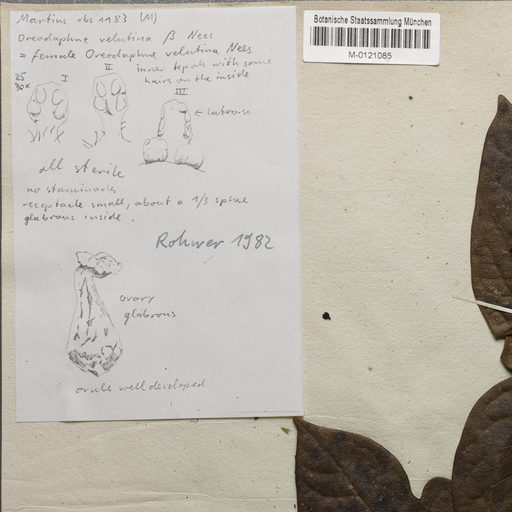 Martius obs 1183 (M)
Oreodaphne velutina β Nees
= female Oreodaphne velutina Nees
inner tepals with some
hairs on the inside
25
30x
I
II
III
← latrorse
all sterile
no staminodes
receptacle small, about a 1/3 sphere
glabrous inside.
Rohwer 1982
ovary
glabrous
ovule well developed
Botanische Staatssammlung München
M-0121085